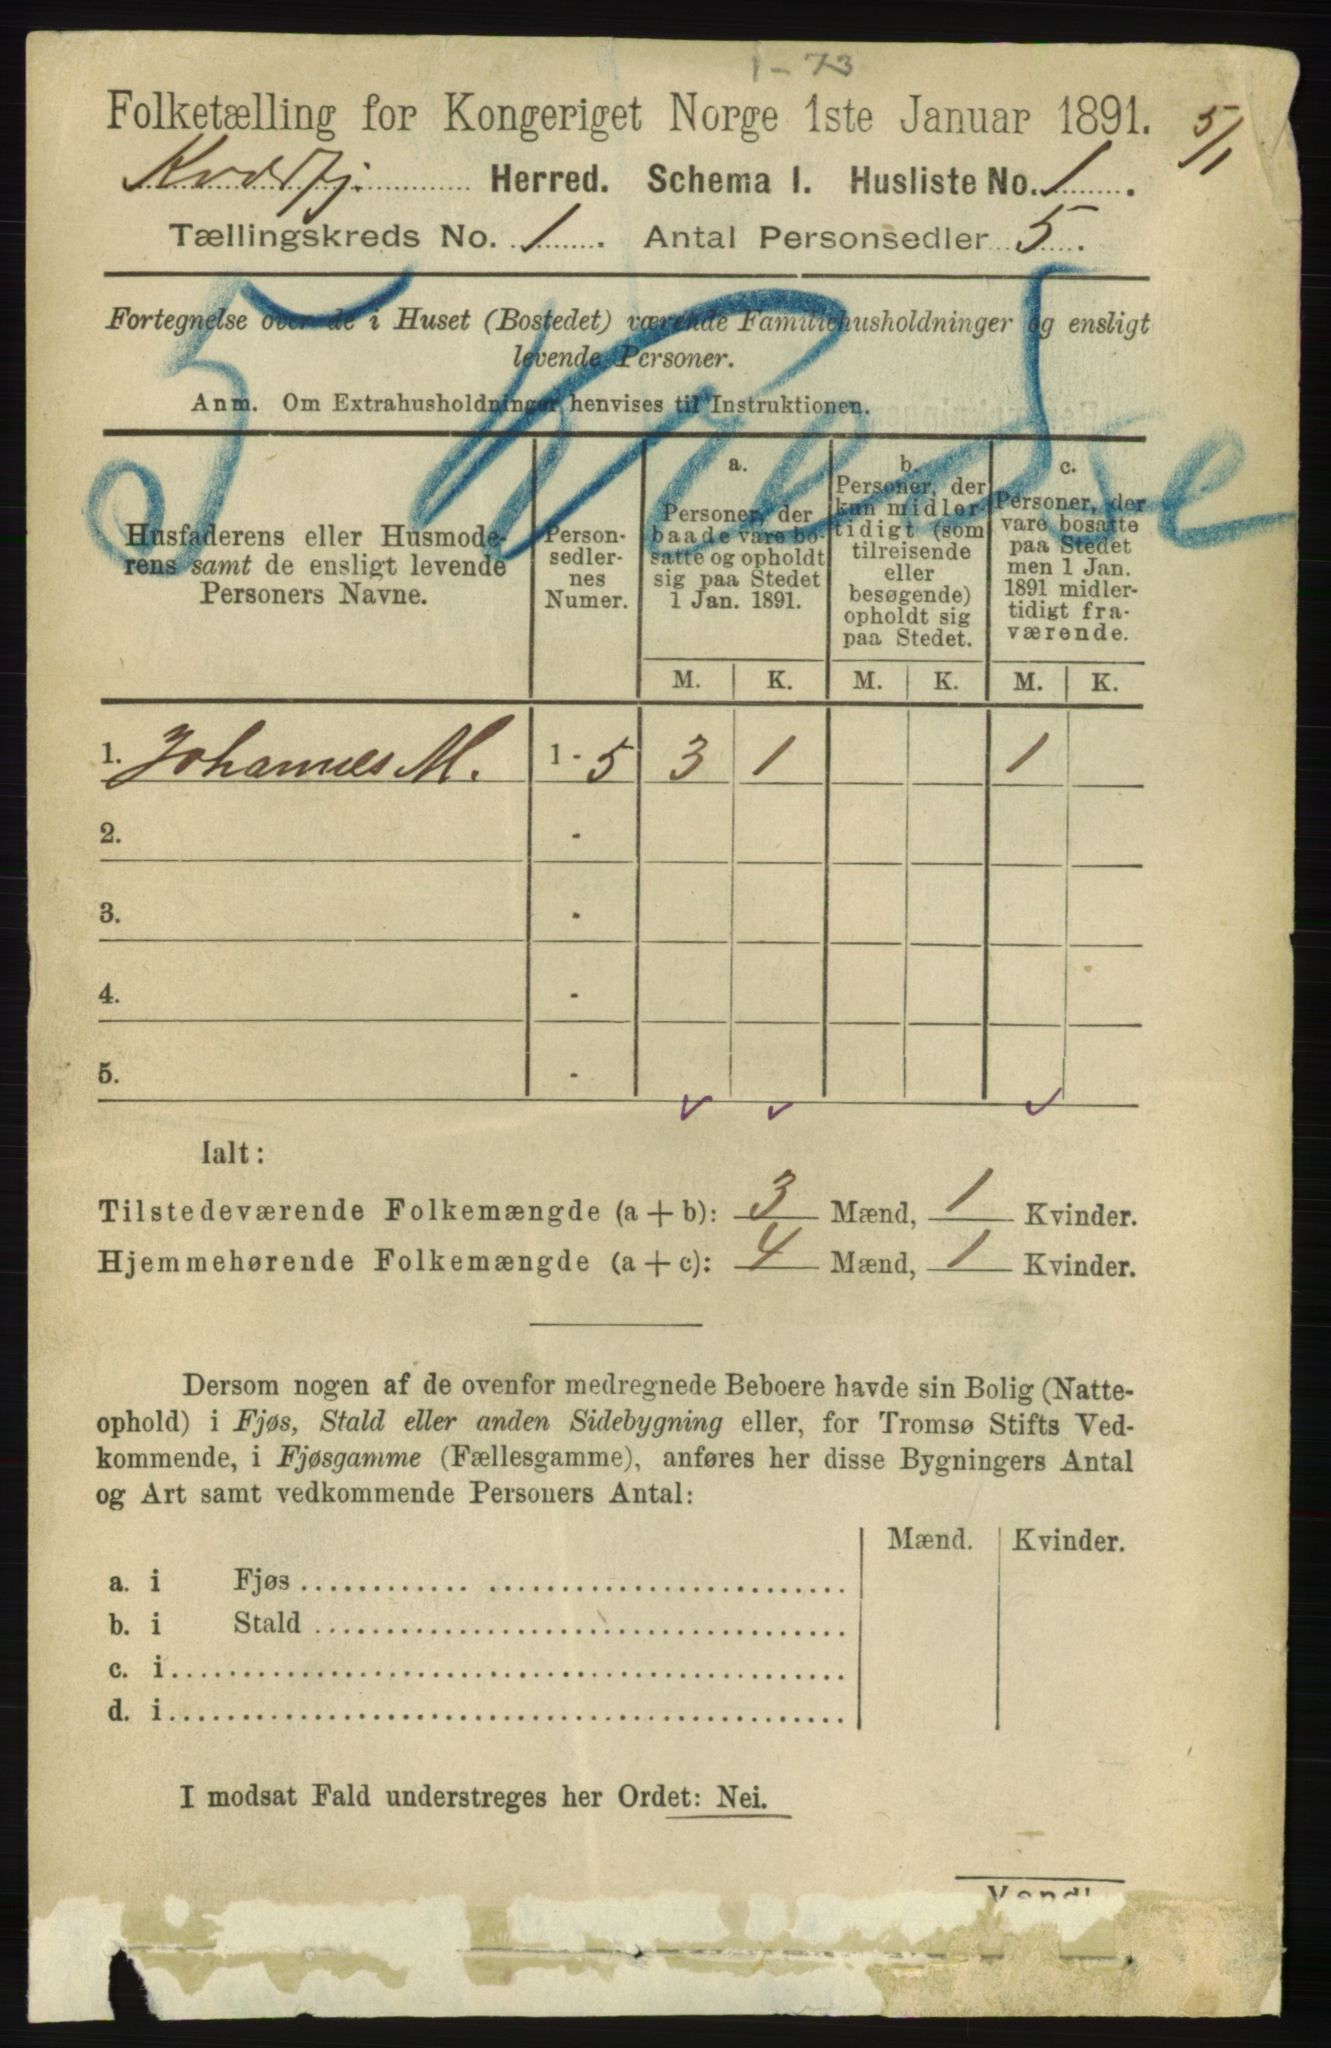 1-73
Folketælling for Kongeriget Norge 1ste Januar 1891.
5/1
Kvædfj. Herred. Schema I. Husliste No. 1.
Tællingskreds No. 1. Antal Personsedler 5.
Fortegnelse over de i Huset (Bostedet) værende Familiehusholdninger og ensligt
levende Personer.
Anm. Om Extrahusholdninger henvises til Instruktionen.
Husfaderens eller Husmode-
rens samt de ensligt levende
Personers Navne.
Person-
sedler-
nes
Numer.
a.
Personer, der
baade vare bo-
satte og opholdt
sig paa Stedet
1 Jan. 1891.
b.
Personer, der
kun midler-
tidigt (som
tilreisende
eller
besøgende)
opholdt sig
paa Stedet.
c.
Personer, der
vare bosatte
paa Stedet
men 1 Jan.
1891 midler-
tidigt fra-
værende.
M. K. M. K. M. K.
1. Johannes M. 1 - 5 3 1 1
2. -
3. -
4. -
5. -
Ialt:
Tilstedeværende Folkemængde (a + b): 3 Mænd, 1 Kvinder.
Hjemmehørende Folkemængde (a + c): 4 Mænd, 1 Kvinder.
Dersom nogen af de ovenfor medregnede Beboere havde sin Bolig (Natte-
ophold) i Fjøs, Stald eller anden Sidebygning eller, for Tromsø Stifts Ved-
kommende, i Fjøsgamme (Fællesgamme), anføres her disse Bygningers Antal
og Art samt vedkommende Personers Antal:
Mænd. Kvinder.
a. i Fjøs
b. i Stald
c. i
d. i
I modsat Fald understreges her Ordet: Nei.
Vend!